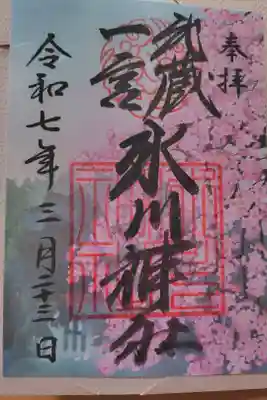 奉拝
武蔵
一宮
氷川神社
令和七年三月二十三日